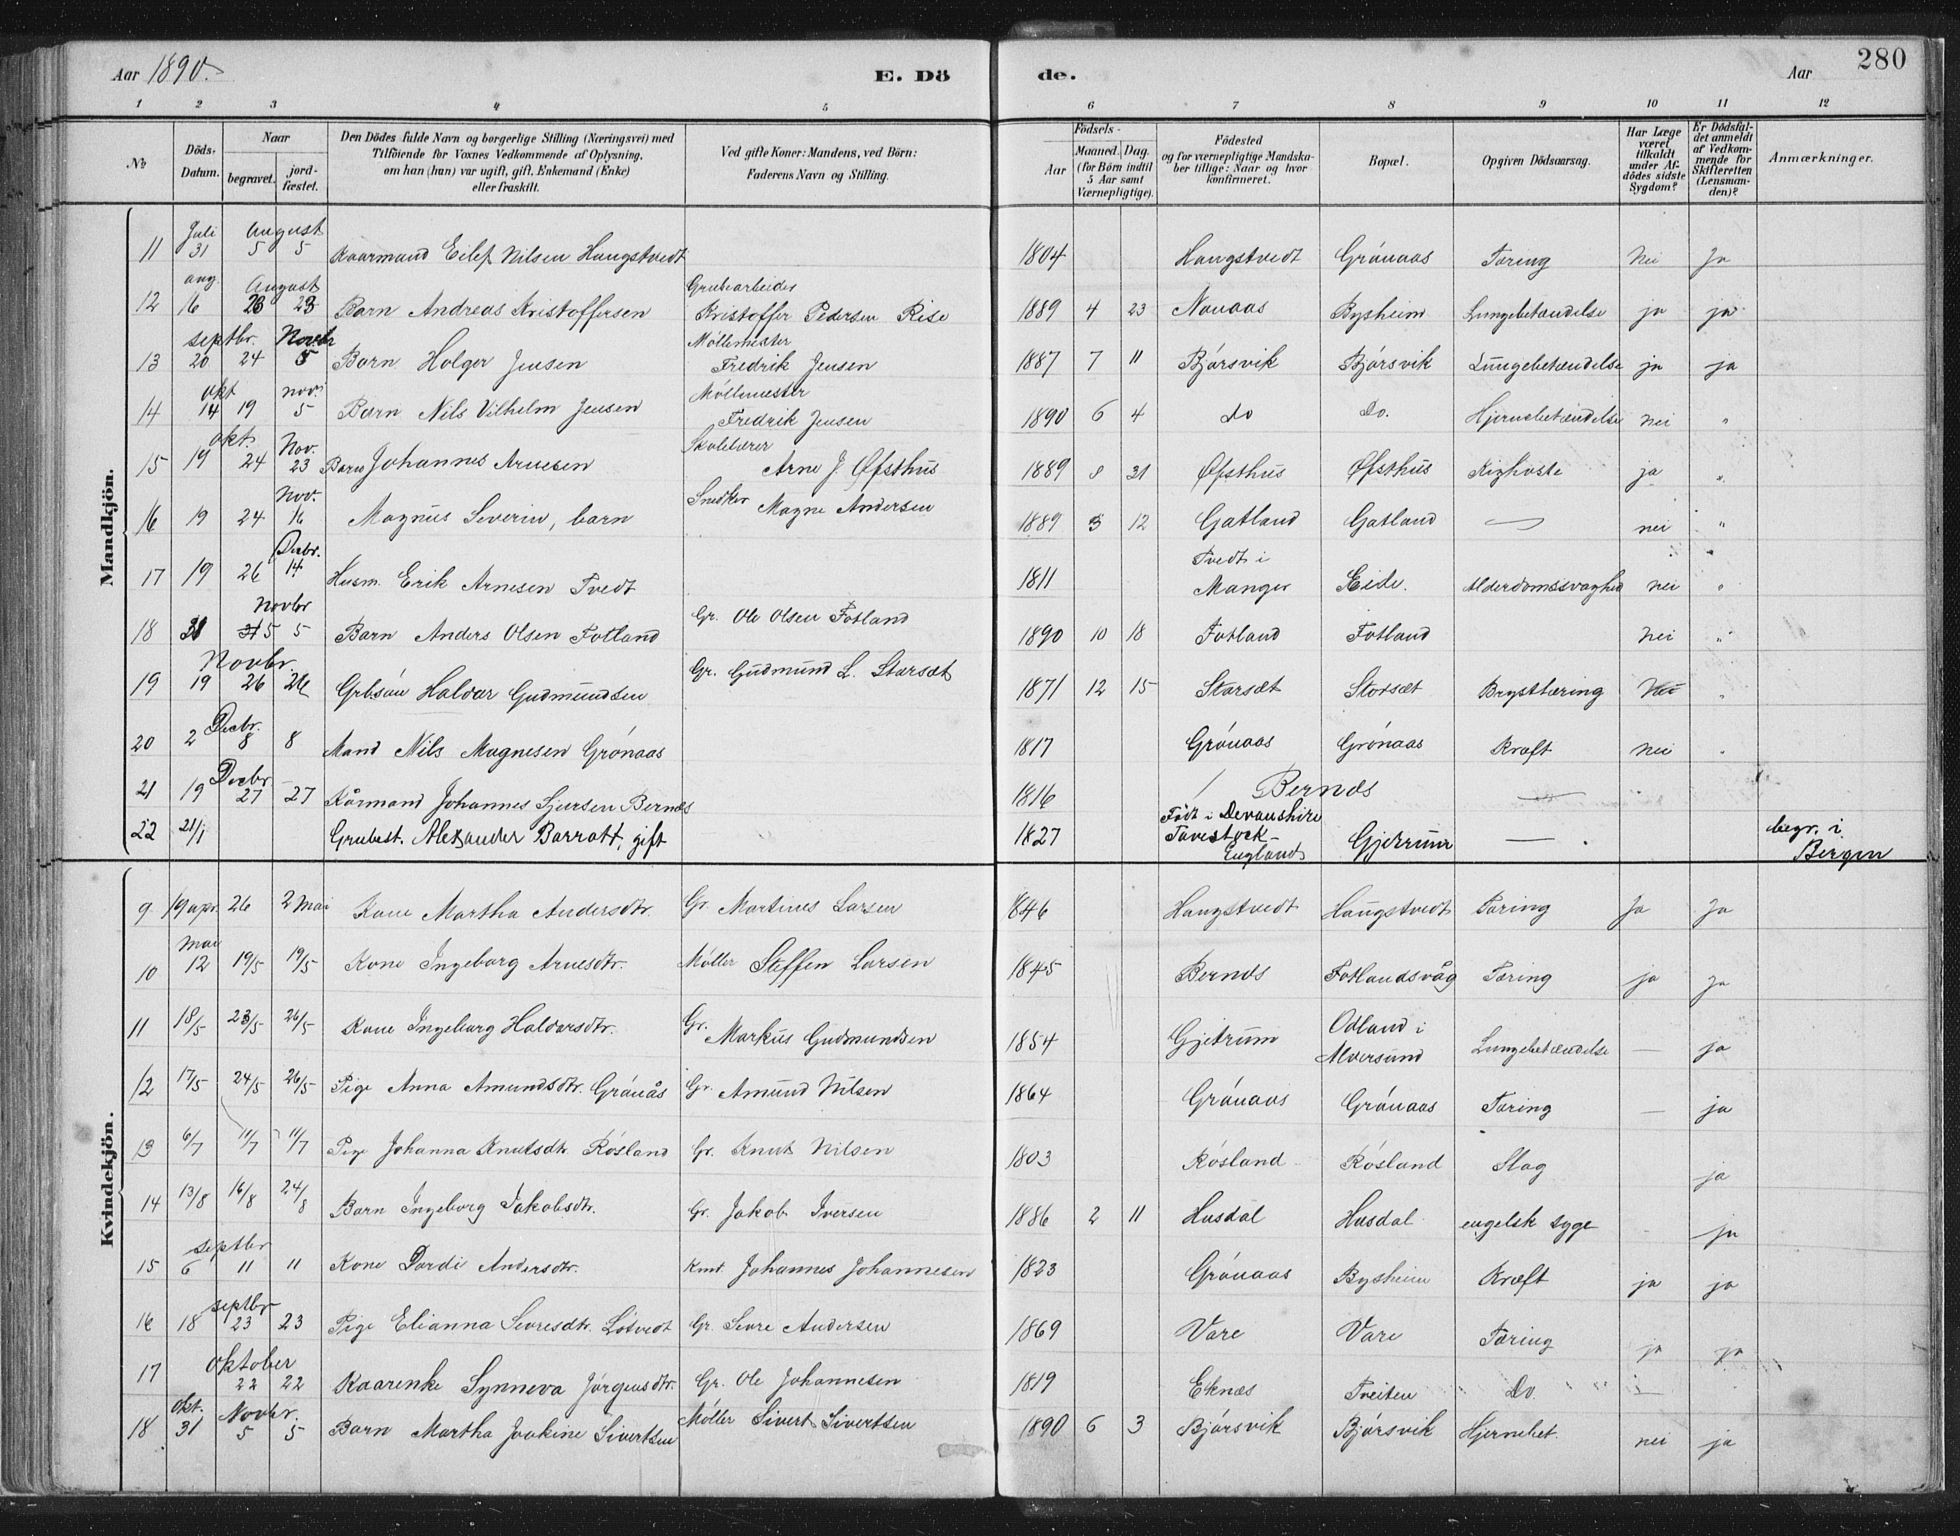 Aar 1890. E. Dö
de. Aar 280
1 2 3 4 5 6 7 8 9 10 11 12
No Döds-Datum. Naar begravet. jordfæstet. Den Dödes fulde Navn og borgerlige Stilling (Næringsvei) med Tilföiende for Voxnes Vedkommende af Oplysning, om han (hun) var ugift, gift, Enkemand (Enke) eller fraskilt. Ved gifte Koner: Mandens, ved Börn: Faderens Navn og Stilling. Födsels- Aar Maaned. Dag. (for Börn indtil 5 Aar samt Værnepligtige). Födested og for værnepligtige Mandskaber tillige: Naar og hvor konfirmeret. Bopæl. Opgiven Dödsaarsag. Har Læge været tilkaldt under Afdödes sidste Sygdom? Er Dödsfaldet anmeldt af Vedkommende for Skifteretten (Lensmanden)? Anmærkninger.
Mandkjön.
11 Juli 31 August 5 5 Kaarmand Eilef Nilsen Hangstvedt 1804 Hangstvedt Grönaas Tæring Nei Ja
12 aug. 16 August 23 23 Barn Andreas Kristoffersen Grubearbeider Kristoffer Pedersen Rise 1889 4 23 Nonaas Bysheim Lungebetændelse ja ja
13 septbr. 20 24 Novbr 5 Barn Holger Jensen Möllemester Fredrik Jensen 1887 7 11 Bjørsvik Bjørsvik Lungebetændelse ja ja
14 okt 14 19 nov. 5 Barn Nils Vilhelm Jensen Möllemester Fredrik Jensen 1890 6 4 do Do. Hjernebetændelse nei "
15 okt. 19 24 Nov. 23 Barn Johannes Arnesen Skolelærer Arne J. Øfsthus 1889 8 31 Øfsthus Øfsthus Kighoste ja "
16 19 24 Nov. 16 Magnus Severin, barn Snedker Magne Andersen 1889 3 12 Gatland Gatland — nei "
17 19 26 Decbr. 14 Husm. Erik Arnesen Tvedt 1811 Tvedt i Manger Eide. Alderdomssvaghed nei "
18 31 5 Novbr 5 Barn Anders Olsen Fotland Gr. Ole Olsen Fotland 1890 10 18 Fotland Fotland Nei "
19 Novbr. 19 26 26 Grbsön Haldor Gudmundsen Gr. Gudmund L. Storsæt 1871 12 15 Storsæt Storsæt Brysttæring Nei "
20 2 Decbr. 8 8 Mand Nils Magnesen Grönaas 1817 Grönaas Grønaas Kræft nei "
21 19 Decbr 27 27 Kårmand Johannes Sjursen Bernæs 1816 / Bernæs —
22 21/1 Grubest. Alexander Barratt, gift 1827 Født i Devonshire Tavestock England Gjetrum — begr. i Bergen
Kvindekjön.
9 19 apr. 26 2 Mai Kone Martha Andersdtr. Gr. Martinus Larsen 1846 Hangstvedt Haugstvedt Tæring Ja Ja
10 Mai 12 19/5 19/5 Kone Ingeborg Arnesdtr. Møller Steffen Larsen 1845 Bernæs Fotlandsvåg Tæring ja Ja
11 18/5 23/5 26/5 Kone Ingeborg Haldorsdtr. Gr. Markus Gudmundsen 1854 Gjetrum Odland i Alversund Lungebetændelse — ja
12 17/5 24/5 26/5 Pige Anna Amundsdtr. Grönås Gr. Amund Nilsen 1864 Grönaas Grönaas Tæring — ja
13 6/7 11/7 11/7 Pige Johanna Knutsdtr. Røsland Gr. Knut Nilsen 1803 Røsland Røsland Slag ja
14 13/8 16/8 24/8 Barn Ingeborg Jakobsdtr. Gr. Jakob Iversen 1886 2 11 Husdal Husdal engelsk syge ja
15 septbr 6 11 11 Kone Dordi Andersdtr. Kmt. Johannes Johannesen 1823 Grönaas Bysheim Kræft ja ja
16 18 septbr 23 23 Pige Elianna Sevresdtr. Lötvedt Gr. Sevre Andersen 1869 Vare Vare Tæring ja ja
17 Oktober 22 22 Kaarenke Synneva Jørgensdtr. Gr. Ole Johannesen 1819 Eknæs Tveiten Do —
18 Okt. 31 Novbr. 5 5 Barn Martha Joakine Sivertsen Møller Sivert Sivertsen 1890 6 3 Bjørsvik Bjørsvik Hjernebet. nei ja